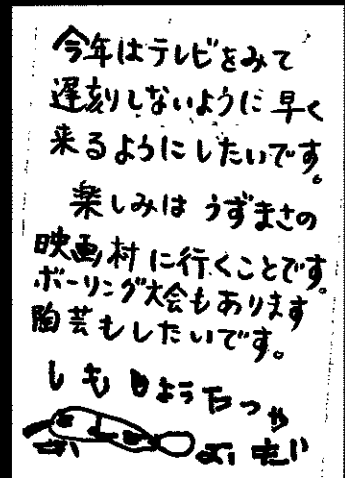 今年はテレビをみて
遅刻しないように早く
来るようにしたいです。
楽しみはうずまさの
映画村に行くことです。
ボーリング大会もあります
陶芸もしたいです。
しもじょうたつや